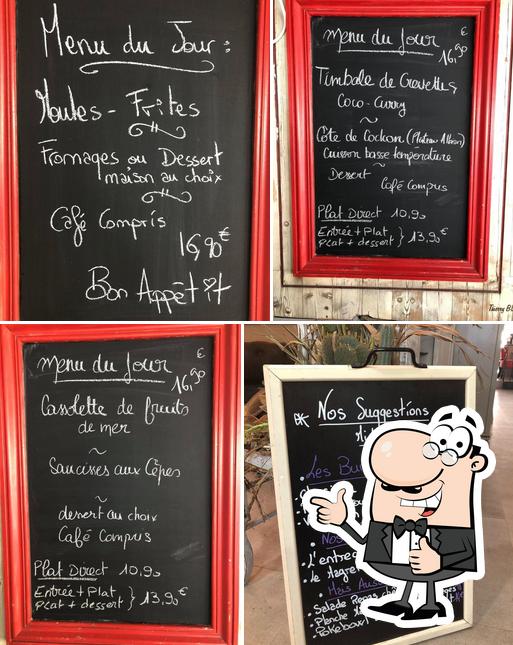 Menu du Jour :
Moules - Frites
Fromages ou Dessert
maison au choix
Café Compris
16,90€
Bon Appétit
Menu du Jour
16,90 €
Timbale de Crevettes
Coco - Curry
~
Côte de Cochon (Plateau Albion)
Cuisson basse température
~
Dessert
Café Compris
Plat Direct 10,90
Entrée + Plat
Plat + dessert } 13,90€
Menu du Jour
16,90 €
Cassolette de fruits
de mer
~
Saucisses aux Cèpes
~
dessert au choix
Café Compris
Plat Direct 10,90
Entrée + Plat
Plat + dessert } 13,90€
* Nos Suggestions
Les
Nos
L'entrec
le Magret
Mais Aussi
Salade Repas
Planche
Pokebowl